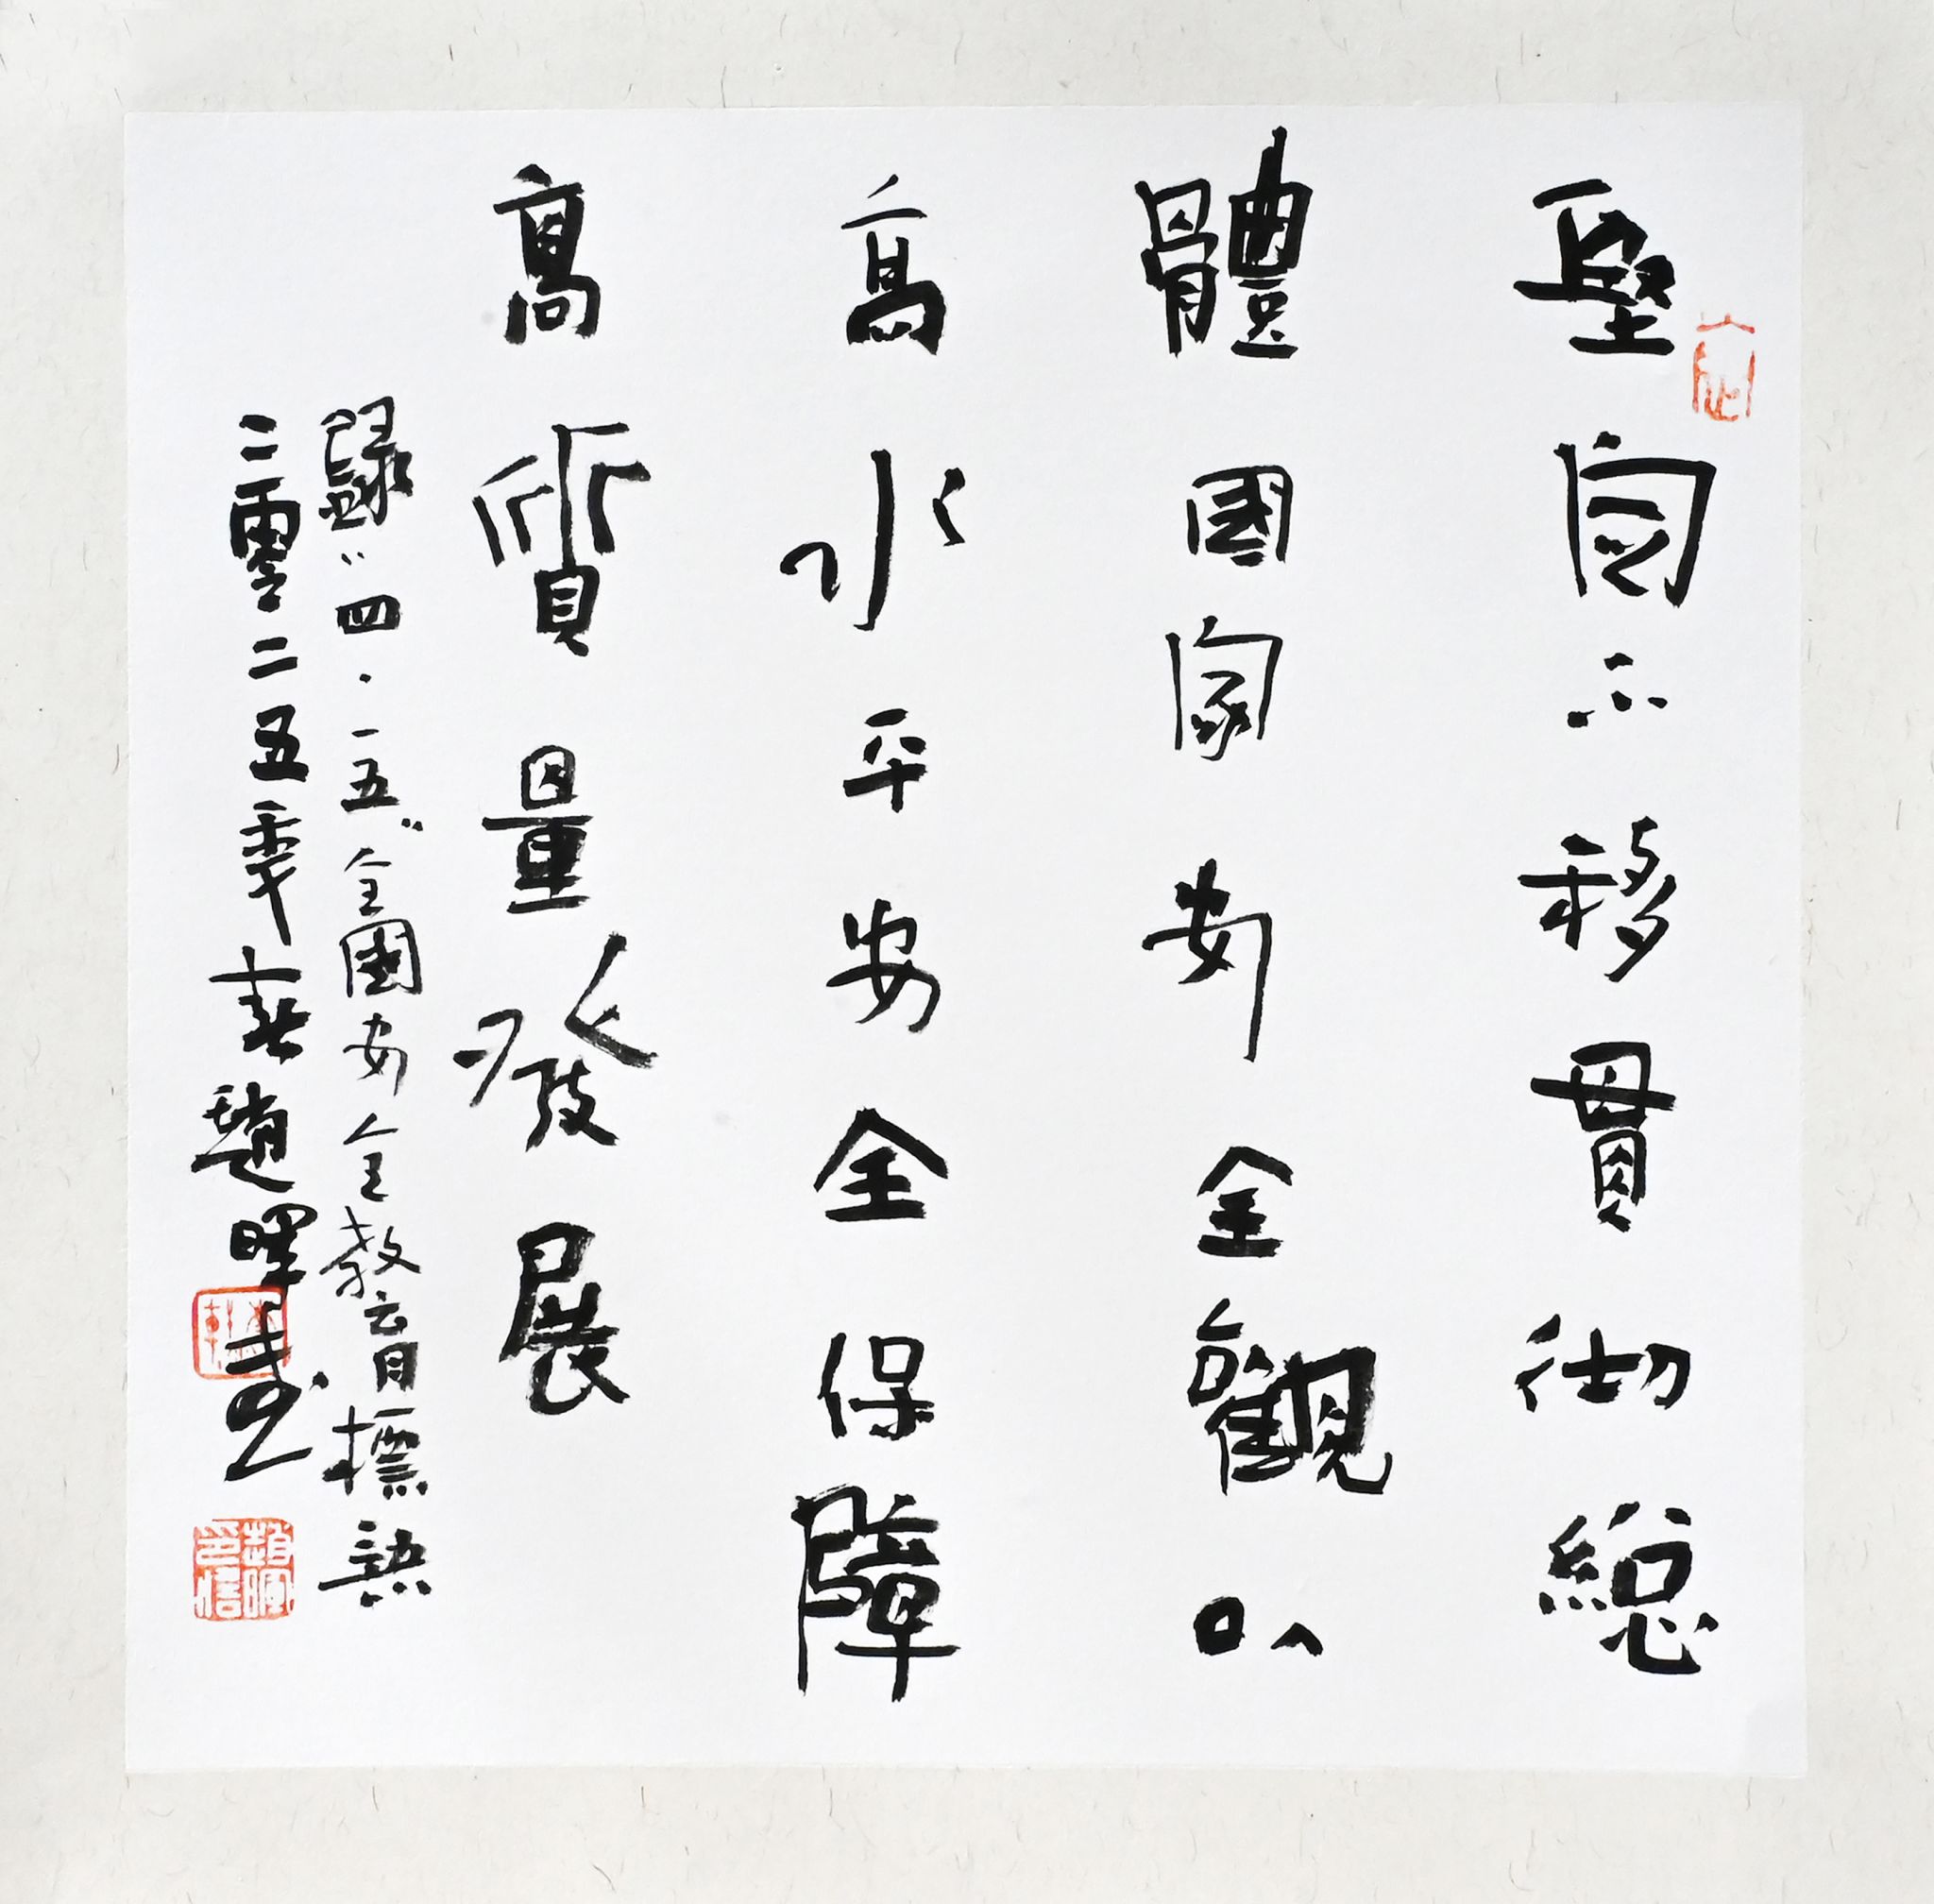 堅定不移貫徹總
體國家安全觀以
高水平安全保障
高質量發展
錄"四·一五"全國安全教育標語
二零二五年春趙暉書
趙暉印信